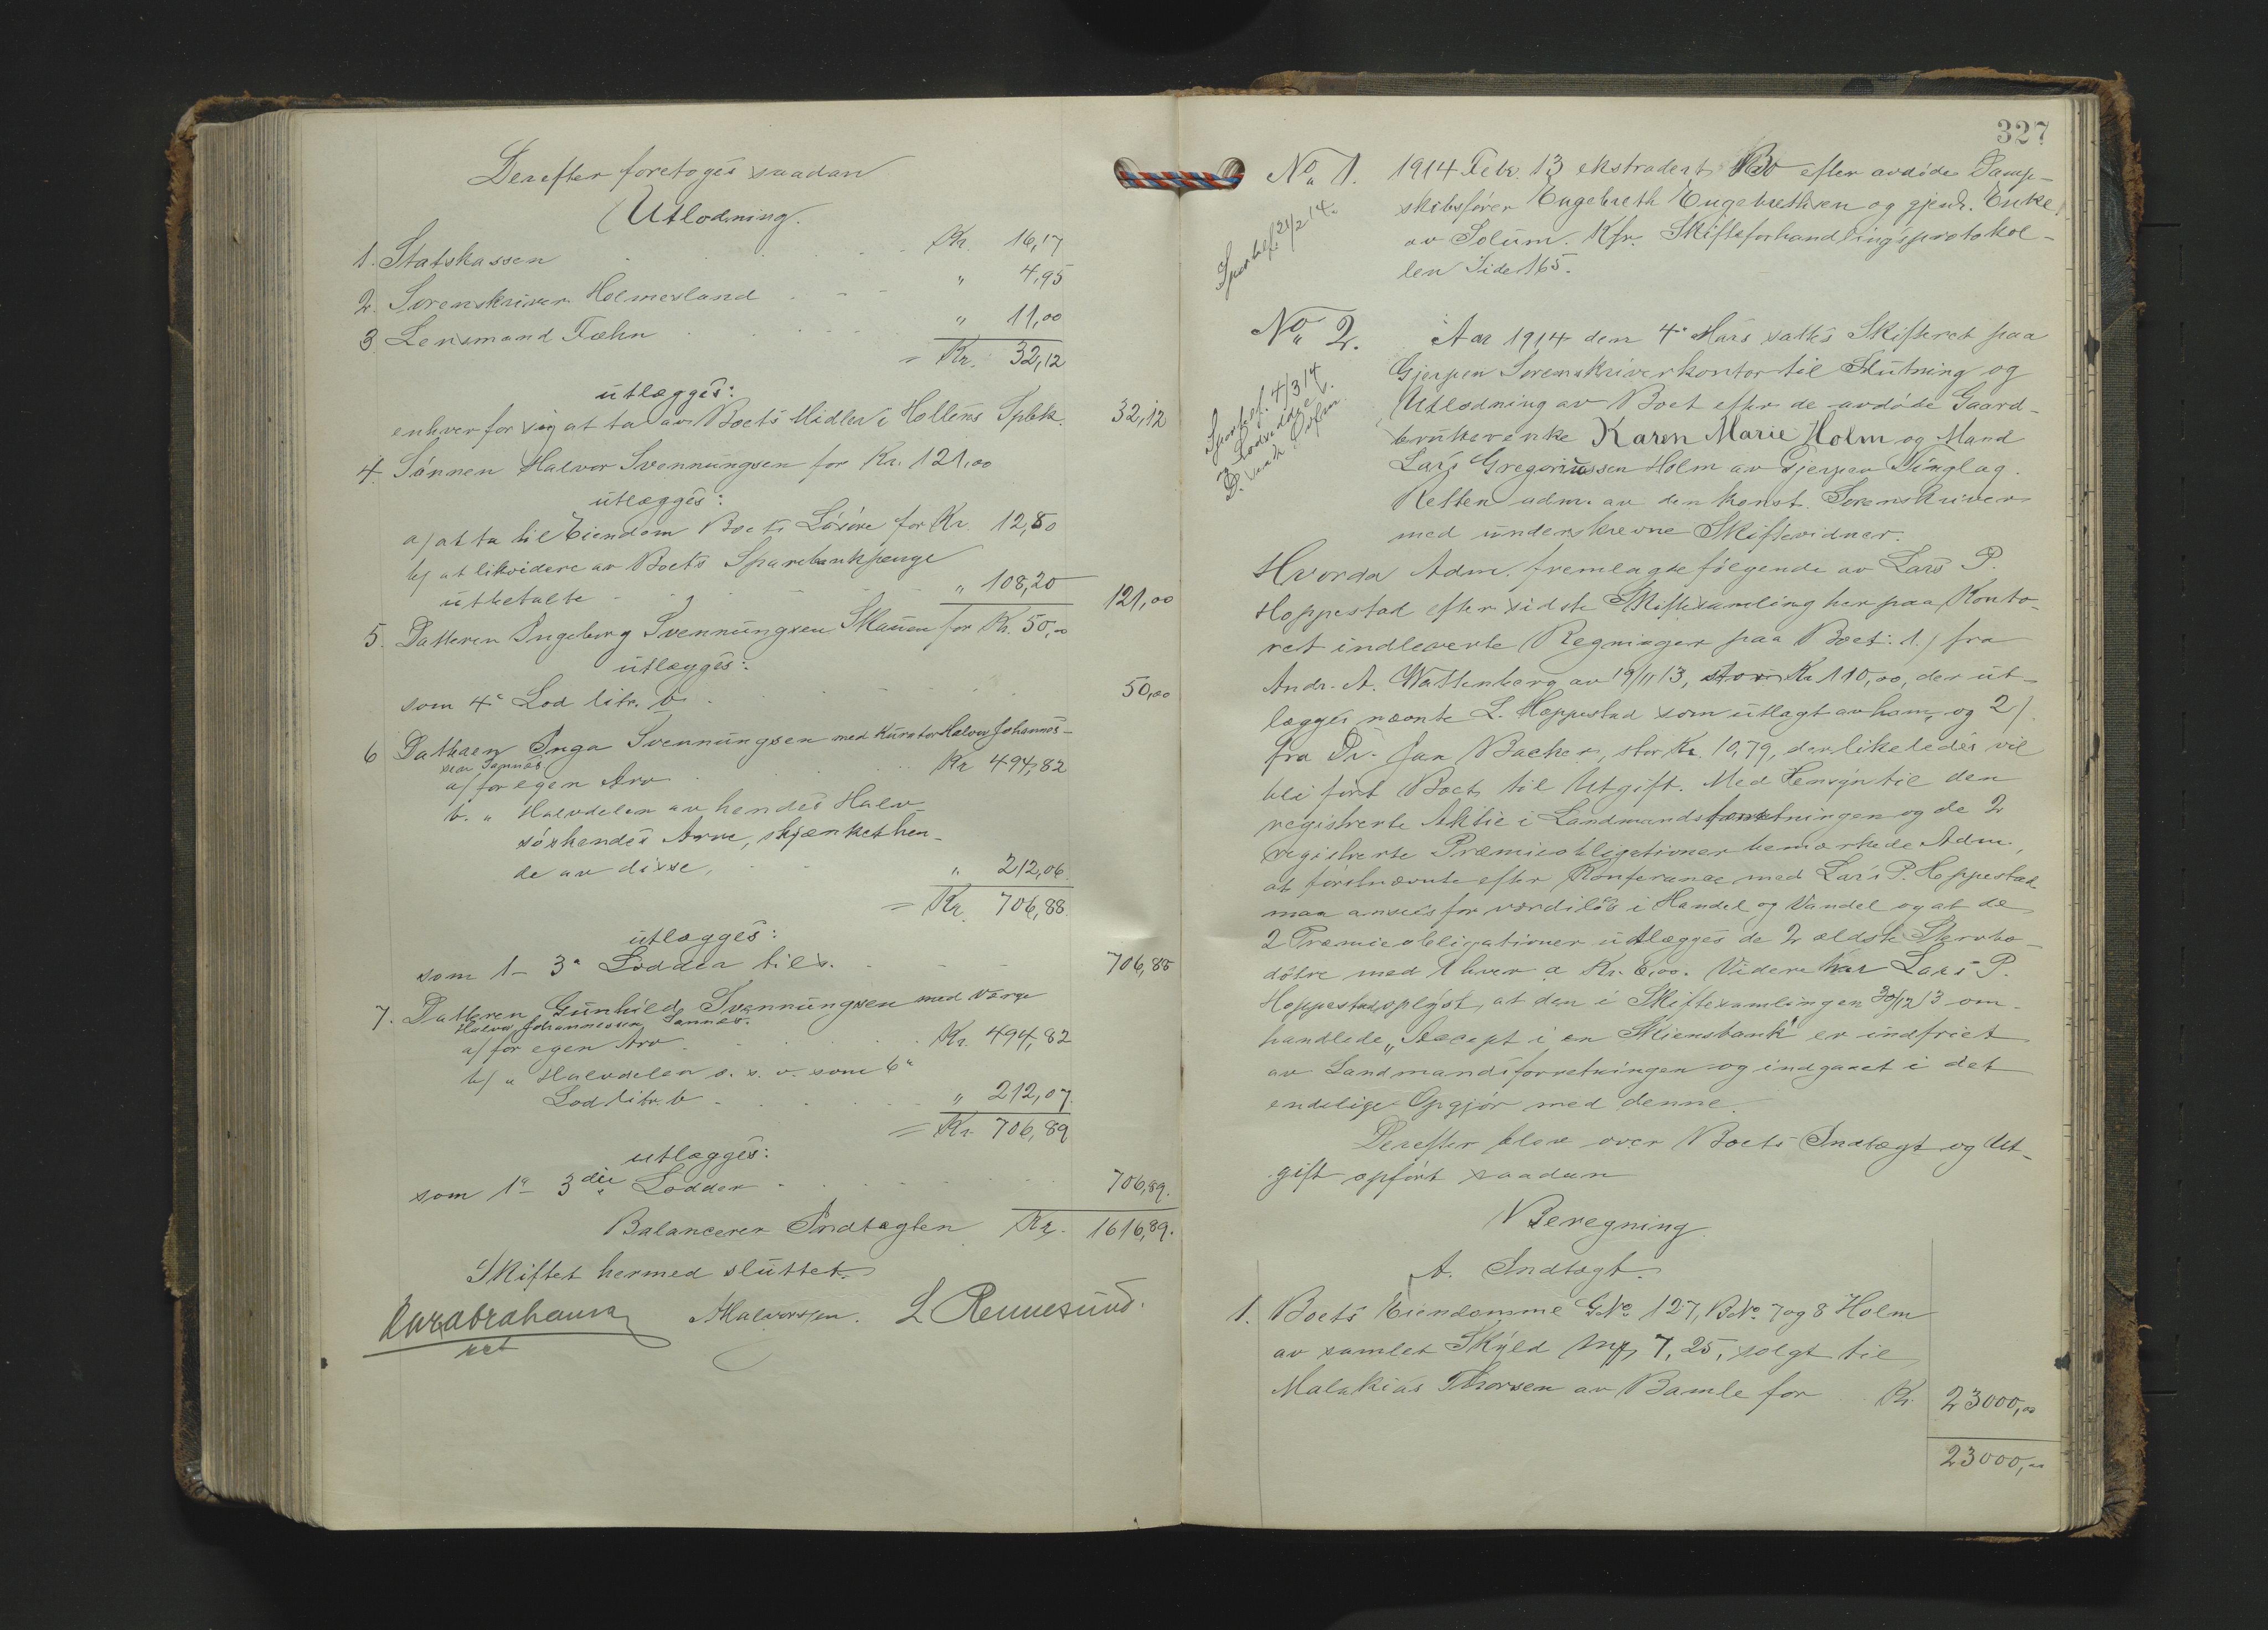 Derefter foretoges saadan
Utlodning.
1. Statskassen Kr. 16,17
2. Sorenskriver Holmesland " 4,95
3. Lensmand Fæhn " 11,00
= Kr. 32,12
utlægges:
enhver for sig at ta av Boets Midler i Hollens Spbk. 32,12
4. Sønnen Halvor Svennungsen for Kr. 121,00
utlægges:
a) at ta til Eiendom Boets Løsøre for Kr. 12,80
b) at likvidere av Boets Sparebankpenge
utbetalte " 108,20 121,00
5. Datteren Ingeborg Svennungsen Skauen for Kr. 50,00
utlægges:
som 4de Lod litr. b 50,00
6 Datteren Inga Svennungsen med Kurator Halvor Johannes-
sen Sannes
a) for egen Arv Kr 494,82
b. " Halvdelen av hendes Halv-
søskendes Arve, skjænket hen-
de av disse, " 212,06
= Kr. 706,88
utlægges:
som 1- 3die Lodder tils. 706,88
7. Datteren Gunhild Svennungsen med Værge
Halvor Johannessen Sannes.
a) for egen Arv Kr. 494,82
b) " Halvdelen o. s. v. som 6te
Lod litr. b " 212,07
= Kr. 706,89
utlægges:
som 1ste- 3die Lodder 706,89.
Balancerer Indtægten Kr. 1616,89.
Skiftet hermed sluttet.
Halvorsen. L Rennesund.
327
No. 1. 1914 Febr. 13 ekstradert Bo efter avdøde Damp-
skibsfører Engebreth Engebrethsen og gjenl. Enke
av Solum. Kfr. Skifteforhandlingsprotokol-
len Side 165.
21/2 14.
No. 2. Aar 1914 den 4de Mars sattes Skifteret paa
Gjerpen Sorenskriverkontor til Slutning og
Utlodning av Boet efter de avdøde Gaard-
brukerenke Karen Marie Holm og Mand
Lars Gregoriussen Holm av Gjerpen Tinglag.
Retten adm. av den konst. Sorenskriver
med underskrevne Skiftevidner.
4/3 14
Hvorda Adm. fremlagde følgende av Lars P.
Hoppestad efter sidste Skiftesamling her paa Konto-
ret indleverte Regninger paa Boet: 1.) fra
Andr. A. Wattenberg av 19/11 13, stor Kr 110,00, der ut-
lægges nævnte L. Hoppestad som utlagt av ham, og 2)
fra Dr. Jan Backer, stor Kr. 10,79, der likeledes vil
bli ført Boet til Utgift. Med Hensyn til den
registrerte Aktie i Landmandsforretningen og de 2
registrerte Præmieobligationer bemærkede Adm.,
at førstnævnte efter Konferance med Lars P. Hoppestad
maa ansees for værdiløs i Handel og Vandel og at de
2 Præmieobligationer utlægges de 2 ældste Stervbo-
døtre med 1 hver a Kr. 6,00. Videre har Lars P.
Hoppestad oplyst, at den i Skiftesamlingen 30/12 13 om-
handlede "Accept i en Skiensbank" er indfriet
av Landmandsforretningen og indgaaet i det
endelige Opgjør med denne.
Derefter blev over Boets Indtægt og Ut-
gift opført saadan
Beregning
A. Indtægt.
1. Boets Eiendomme GNo. 127, BNo. 7 og 8 Holm
av samlet Skyld Mk 7,25, solgt til
Malakias Thorsen av Bamle for Kr. 23000,00
23000,00